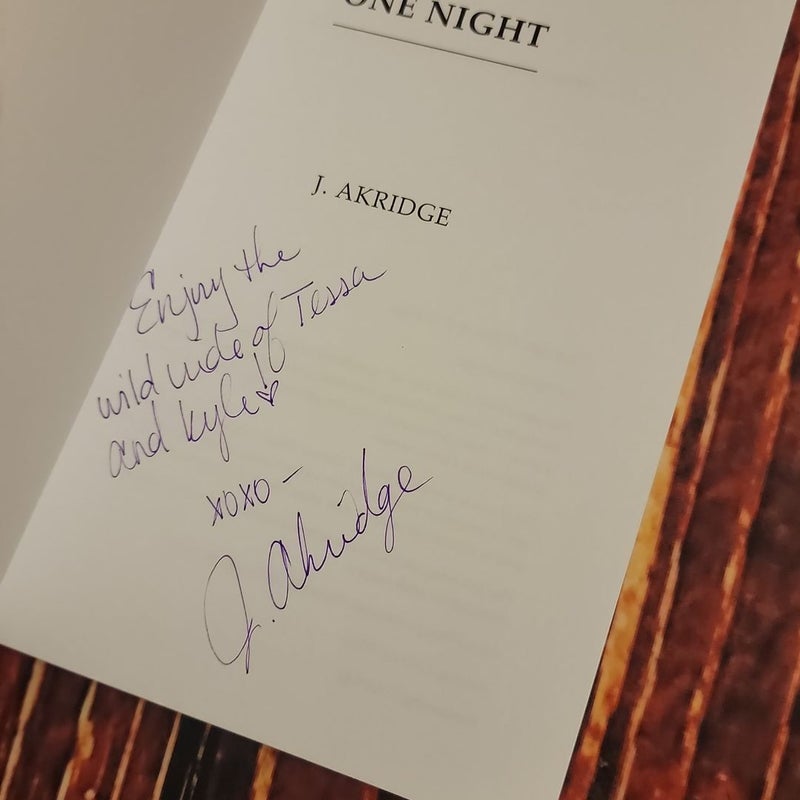 ONE NIGHT
J. AKRIDGE
Enjoy the
wild ride of Tessa
and Kyle!
xoxo -
J. Akridge